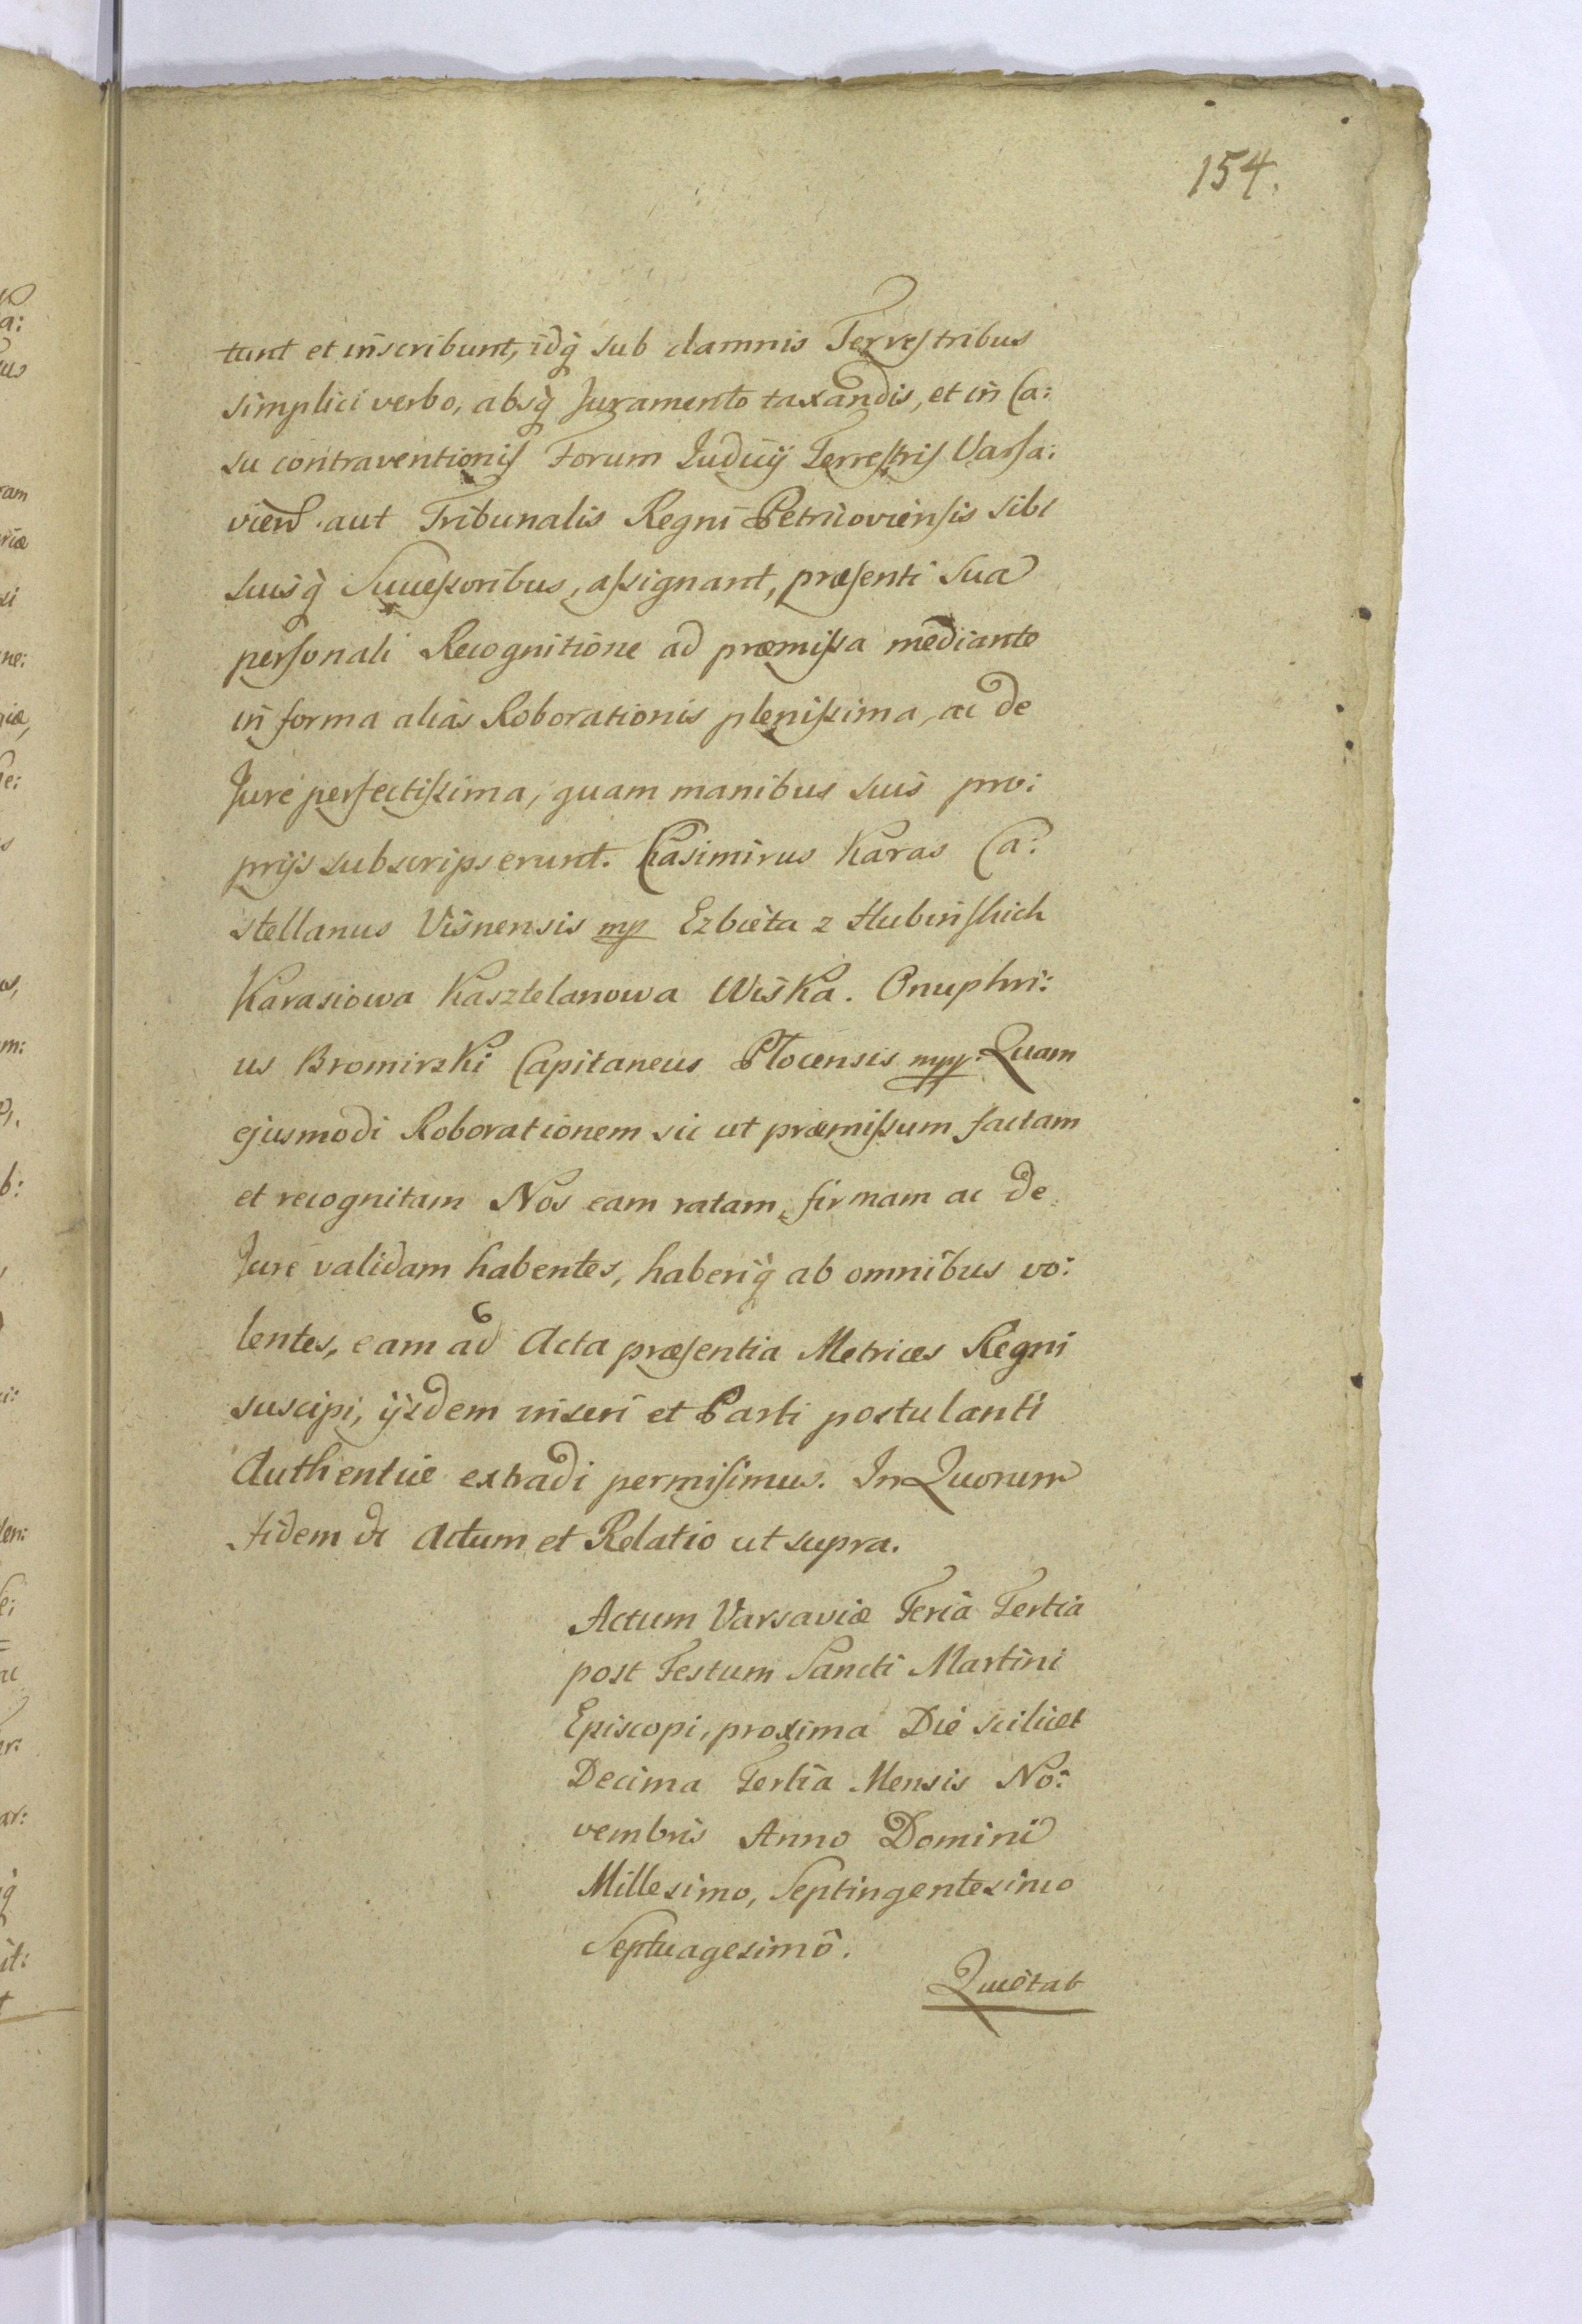 154.
tunt et inscribunt, idq́ sub damnis Terrestribus
simplici verbo, absq́ Juramento taxandis, et in Ca:
su contraventionis Forum Judicÿ Terrestris Varsa:
vien. aut Tribunalis Regni Petricoviensis sibi
suisq́ Successoribus, assignant, præsenti sua
personali Recognitione ad præmissa mediante
in forma aliàs Roborationis plenissima, ac de
Jure perfectissima, quam manibus suis pro:
prijs subscripserunt. Casimirus Karas Ca:
stellanus Visnensis mp Ezbieta z Hubinskich
Karasiowa Kasztelanowa Wiska. Onuphri:
us Bromirski Capitaneus Plocensis mpp. Quam
ejusmodi Roborationem sic ut præmissum factam
et recognitam Nos eam ratam, firmam ac de
Jure validam habentes, haberiq́ ab omnibus vo:
lentes, eam ad Acta præsentia Metrices Regni
suscipi, ijsdem inseri et Parti postulanti
Authentice extradi permisimus. In Quorum
Fidem &c Actum et Relatio ut supra.
Actum Varsaviæ Feria Tertia
post Festum Sancti Martini
Episcopi, proxima Die scilicet
Decima Tertia Mensis No:
vembris Anno Domini
Millesimo, Septingentesimo
Septuagesimô.
Quietat